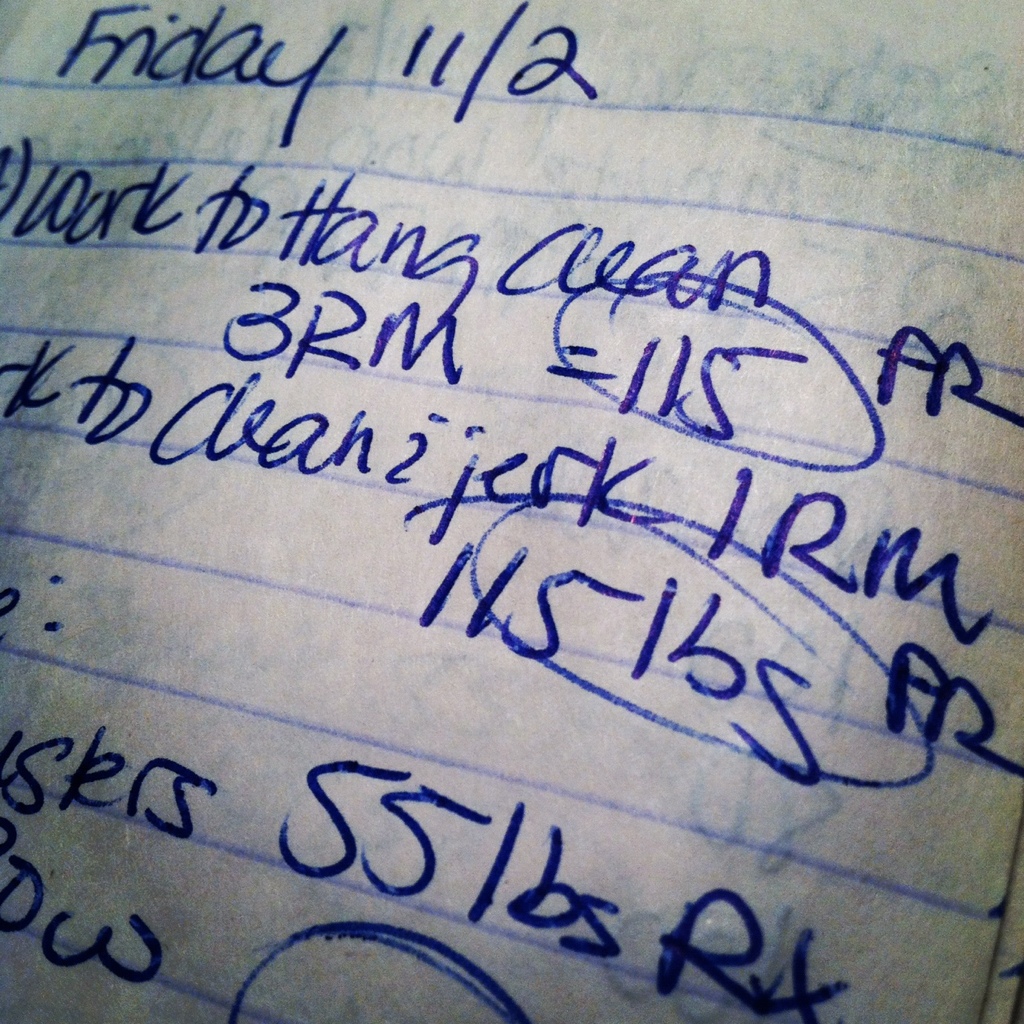 Friday 11/2
) Work to Hang Clean
3RM = 115 PR
rk to Clean & jerk 1RM
115 lbs PR
e:
uskrs 55 lbs Rx
Row